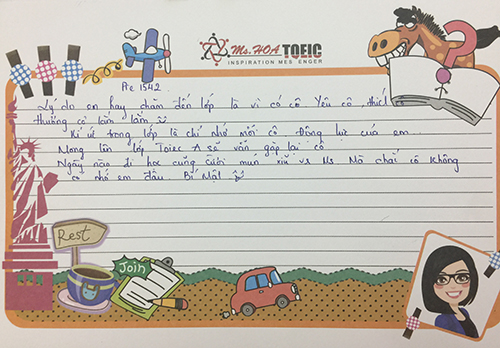 Ms.HOA TOEIC
INSPIRATION MESSENGER
Pre 1542
Lý do em hay chăm đến lớp là vì có cô. Yêu cô, thích
thương cô lắm lắm
Kí ức trong lớp là chỉ nhớ mỗi cô. Động lực của em.
Mong lên lớp Toiec A sẽ vẫn gặp lại cô
Ngày nào đi học cũng cười muốn xỉu vs Ms Mà chắc cô không
có nhớ em đâu. Bí Mật
Rest
Join